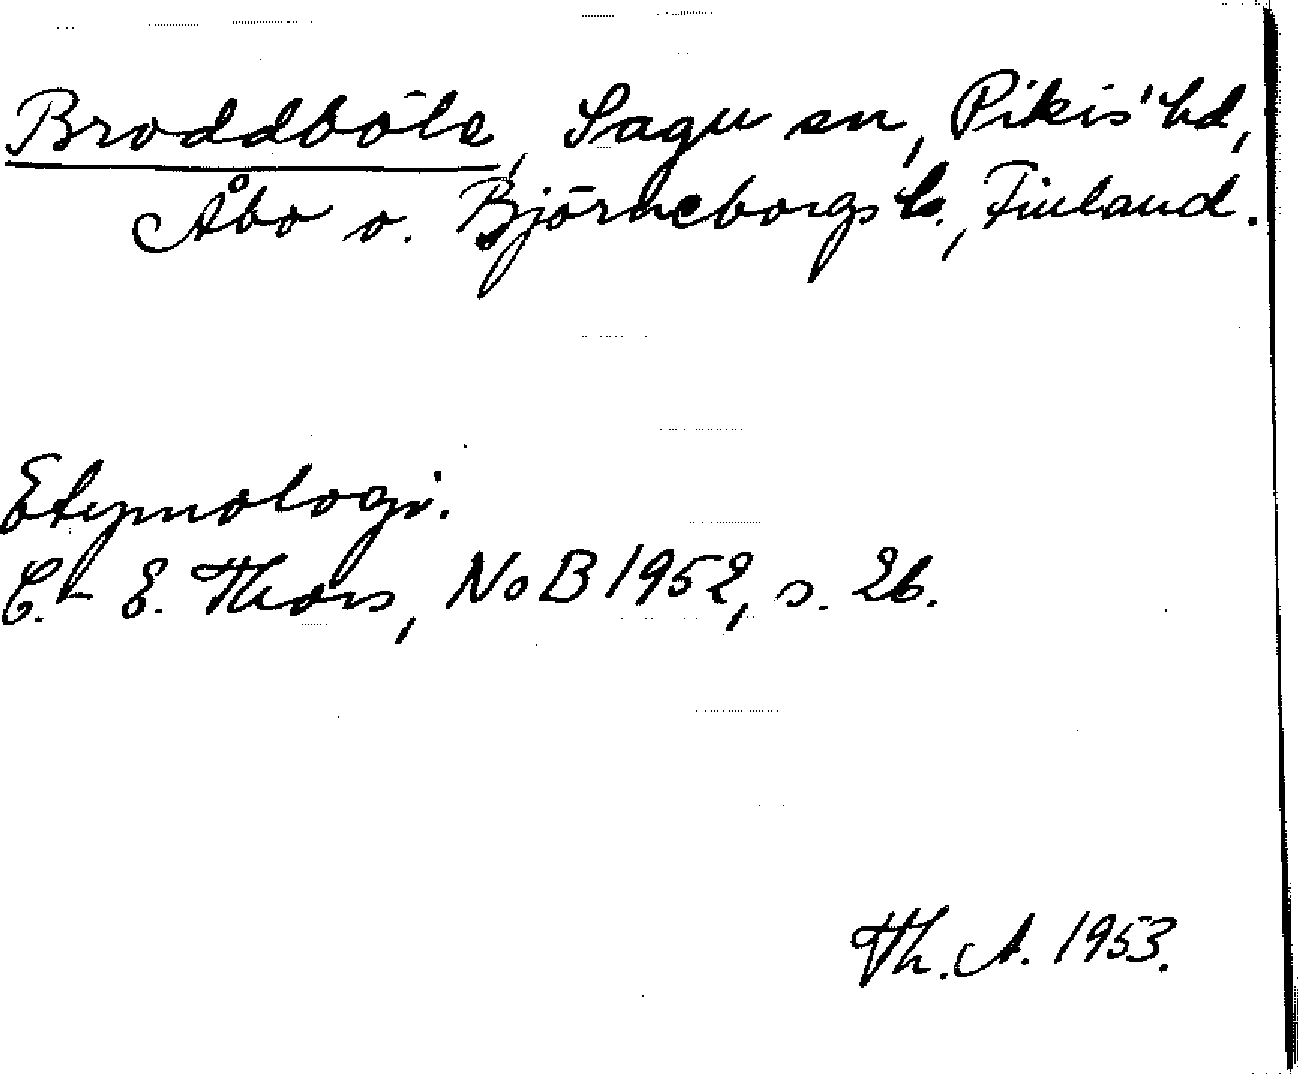 Broddböle, Sagu sn, Pikis hd,
Åbo o. Björneborgs l., Finland.
Etymologi.
C.-E. Thors, NoB 1952, s. 26.
Th. A. 1953.